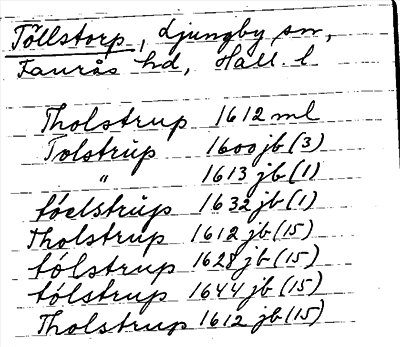 Töllstorp, Ljungby sn,
Faurås hd, Hall. l
Tholstrup 1612 ml
Tolstrup 1600 jb (3)
" 1613 jb (1)
tóelstrup 1632 jb (1)
Tholstrup 1612 jb (15)
tólstrup 1628 jb (15)
tólstrup 1644 jb (15)
Tholstrup 1612 jb (15)